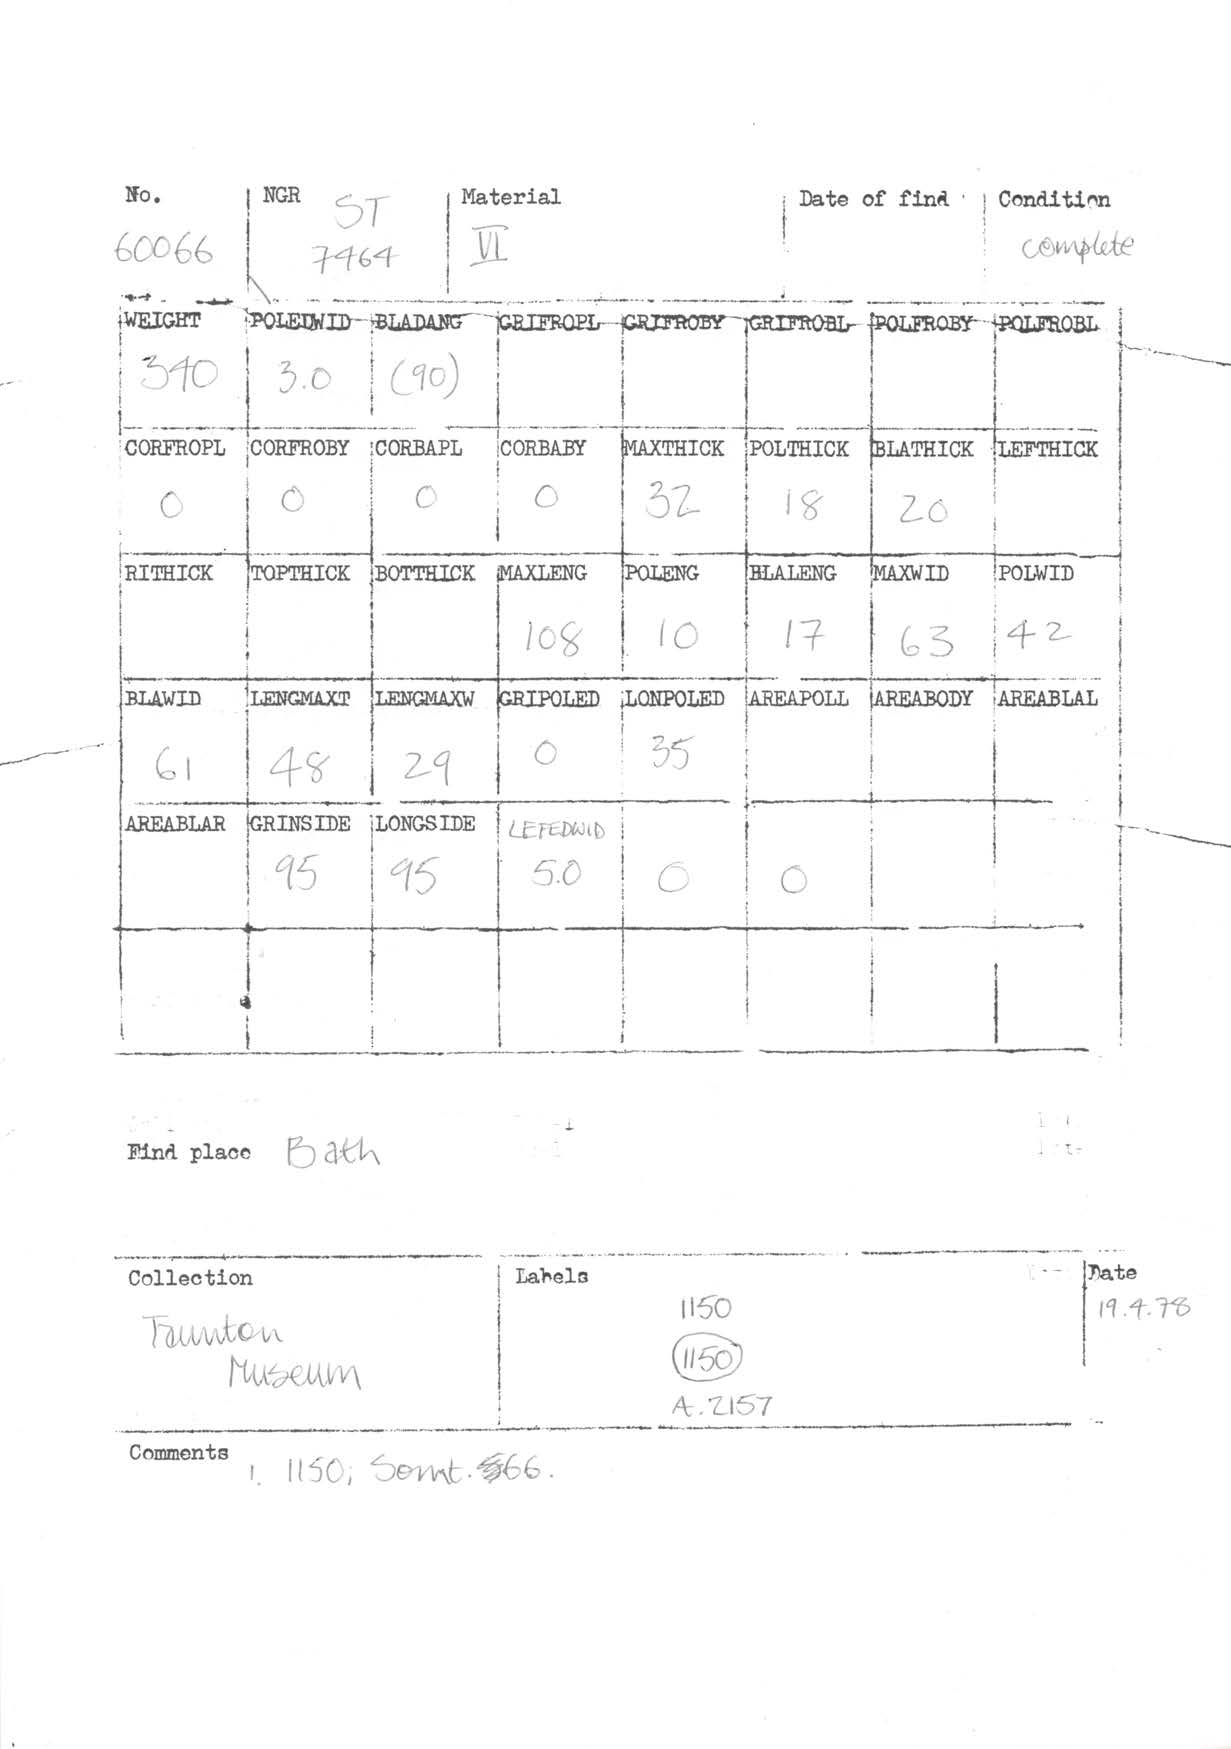 No. NGR Material Date of find Condition
60066 ST 7464 VI complete
WEIGHT POLEDWID BLADANG GRIFROPL GRIFROBY GRIFROBL POLFROBY POLFROBL
340 3.0 (90)
CORFROPL CORFROBY CORBAPL CORBABY MAXTHICK POLTHICK BLATHICK LEFTHICK
0 0 0 0 32 18 20
RITHICK TOPTHICK BOTTHICK MAXLENG POLENG BLALENG MAXWID POLWID
108 10 17 63 42
BLAWID LENGMAXT LENGMAXW GRIPOLED LONPOLED AREAPOLL AREABODY AREABLAL
61 48 29 0 35
AREABLAR GRINSIDE LONGSIDE LEFEDWID
95 95 5.0 0 0
Find place Bath
Collection Labels Date
Taunton Museum
1150
1150
A.2157
19.4.78
Comments
1. 1150; Somt. 66.